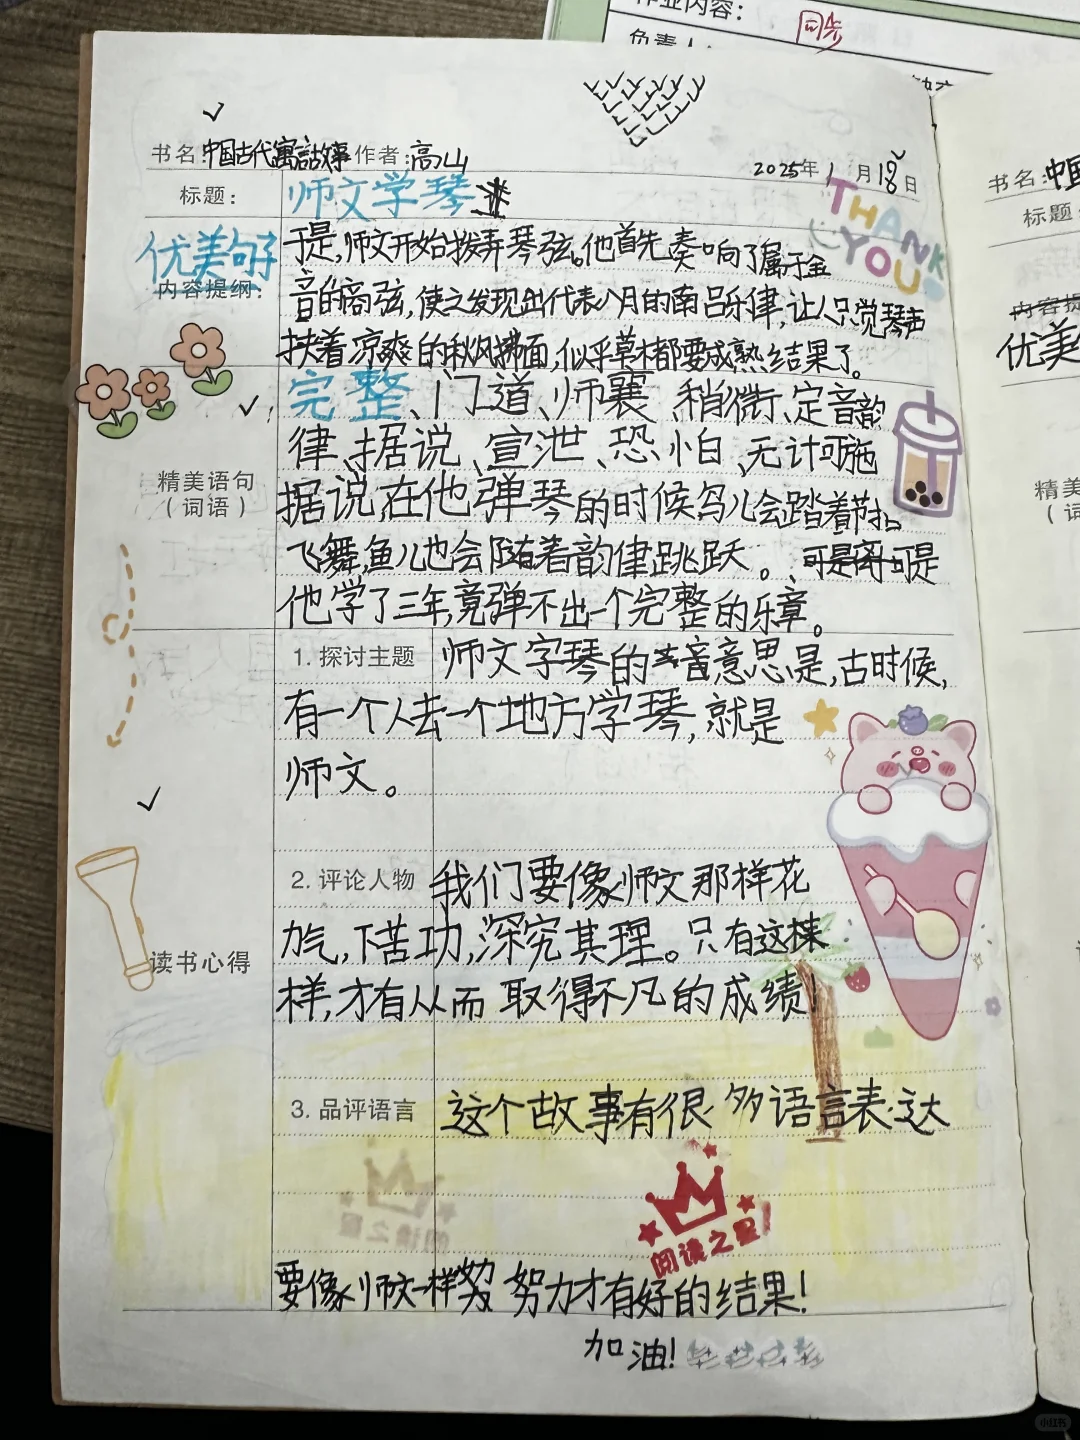 作业内容：
同步
负责人：
书名：中国古代寓言故事 作者：高山
2025年1月18日
THANK
YOU
标题：
师文学琴
优美句子
内容提纲：
于是，师文开始拨弄琴弦。他首先奏响了属于金
音的商弦，使之发现出代表八月的南吕乐律，让人只觉琴声
扶着凉爽的秋风拂面，似乎草木都要成熟结果了。
精美语句
（词语）
完整、门道、师襄、稍微、定音韵
律、据说、宣泄、恐怕、无计可施
据说，在他弹琴的时候鸟儿会踏着节拍
飞舞，鱼儿也会随着韵律跳跃。可是
他学了三年，竟弹不出一个完整的乐章。
读书心得
1. 探讨主题
师文字琴的意思是，古时候，
有一个人去一个地方学琴，就是
师文。
2. 评论人物
我们要像师文那样花
力气，下苦功，深究其理。只有这
样，才有从而取得不凡的成绩
3. 品评语言
这个故事有很多语言表达
阅读之星
要像师文一样努努力才有好的结果！
加油！
书名：中国
标题：
内容提
优美
精美
（词
小红书